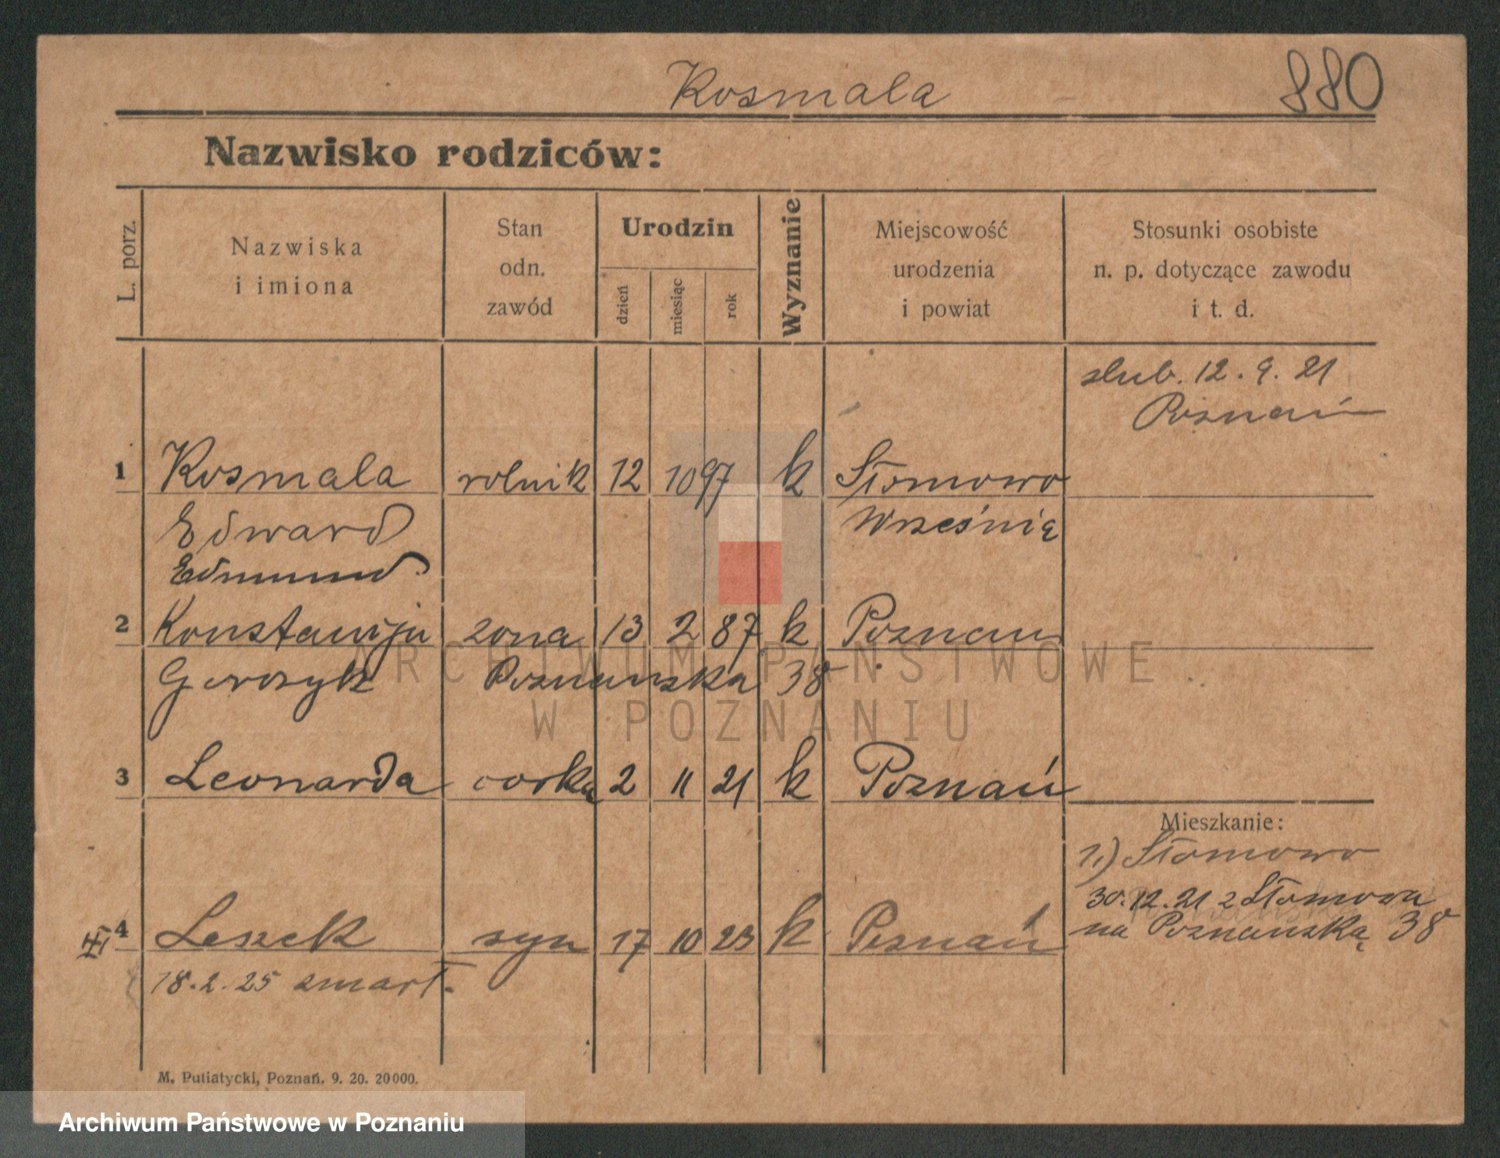 Kosmala 880
Nazwisko rodziców:
L. porz.
Nazwiska
i imiona
Stan
odn.
zawód
Urodzin
dzień
miesiąc
rok
Wyznanie
Miejscowość
urodzenia
i powiat
Stosunki osobiste
n. p. dotyczące zawodu
i t. d.
slub. 12. 9. 21
Poznań
1 Kosmala rolnik 12 10 97 k Stomowo
Edward Wrześnię
Edmund
2 Konstancja zona 13 2 87 k Poznan
Gorczyk Poznanska 38
3 Leonarda corka 2 11 21 k Poznań
Mieszkanie:
1.) Stomowo
30.12.21 z Stomowa
na Poznanską 38
4 Leszek syn 17 10 23 k Poznań
18.2.25 zmarł.
M. Putiatycki, Poznań. 9. 20. 20000.
ARCHIWUM PAŃSTWOWE
W POZNANIU
Archiwum Państwowe w Poznaniu